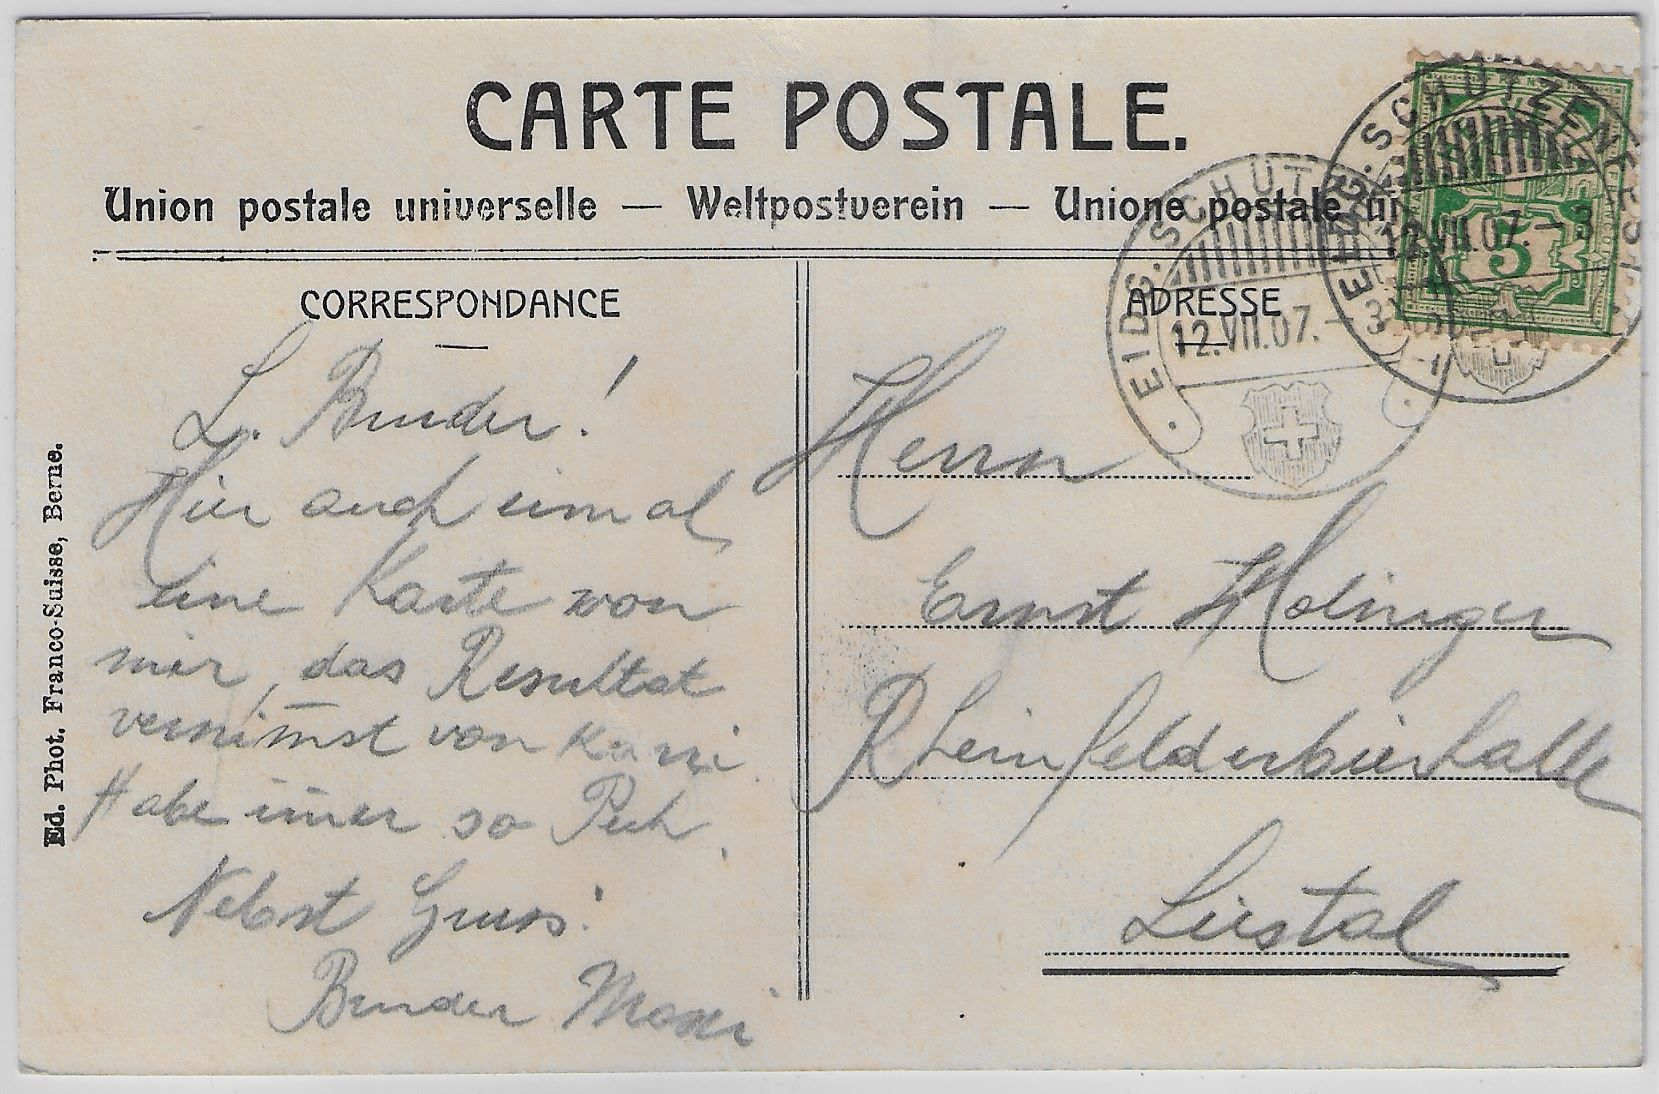 CARTE POSTALE.
Union postale universelle — Weltpostverein — Unione postale un
CORRESPONDANCE
L. Bruder!
Hier auch eimal
eine Karte von
mir, das Resultat
vernim̅st von Karri
Habe im̅er so Pech.
Nebst Gruss!
Bruder Maxi
Ed. Phot. Franco-Suisse, Berne.
ADRESSE
Herrn
Ernst Holinger
Rheinfelderbierhalle
Liestal
EIDG. SCHÜTZENFEST
12.VII.07.-3
EIDG. SCHÜT
12.VII.07.-3
5